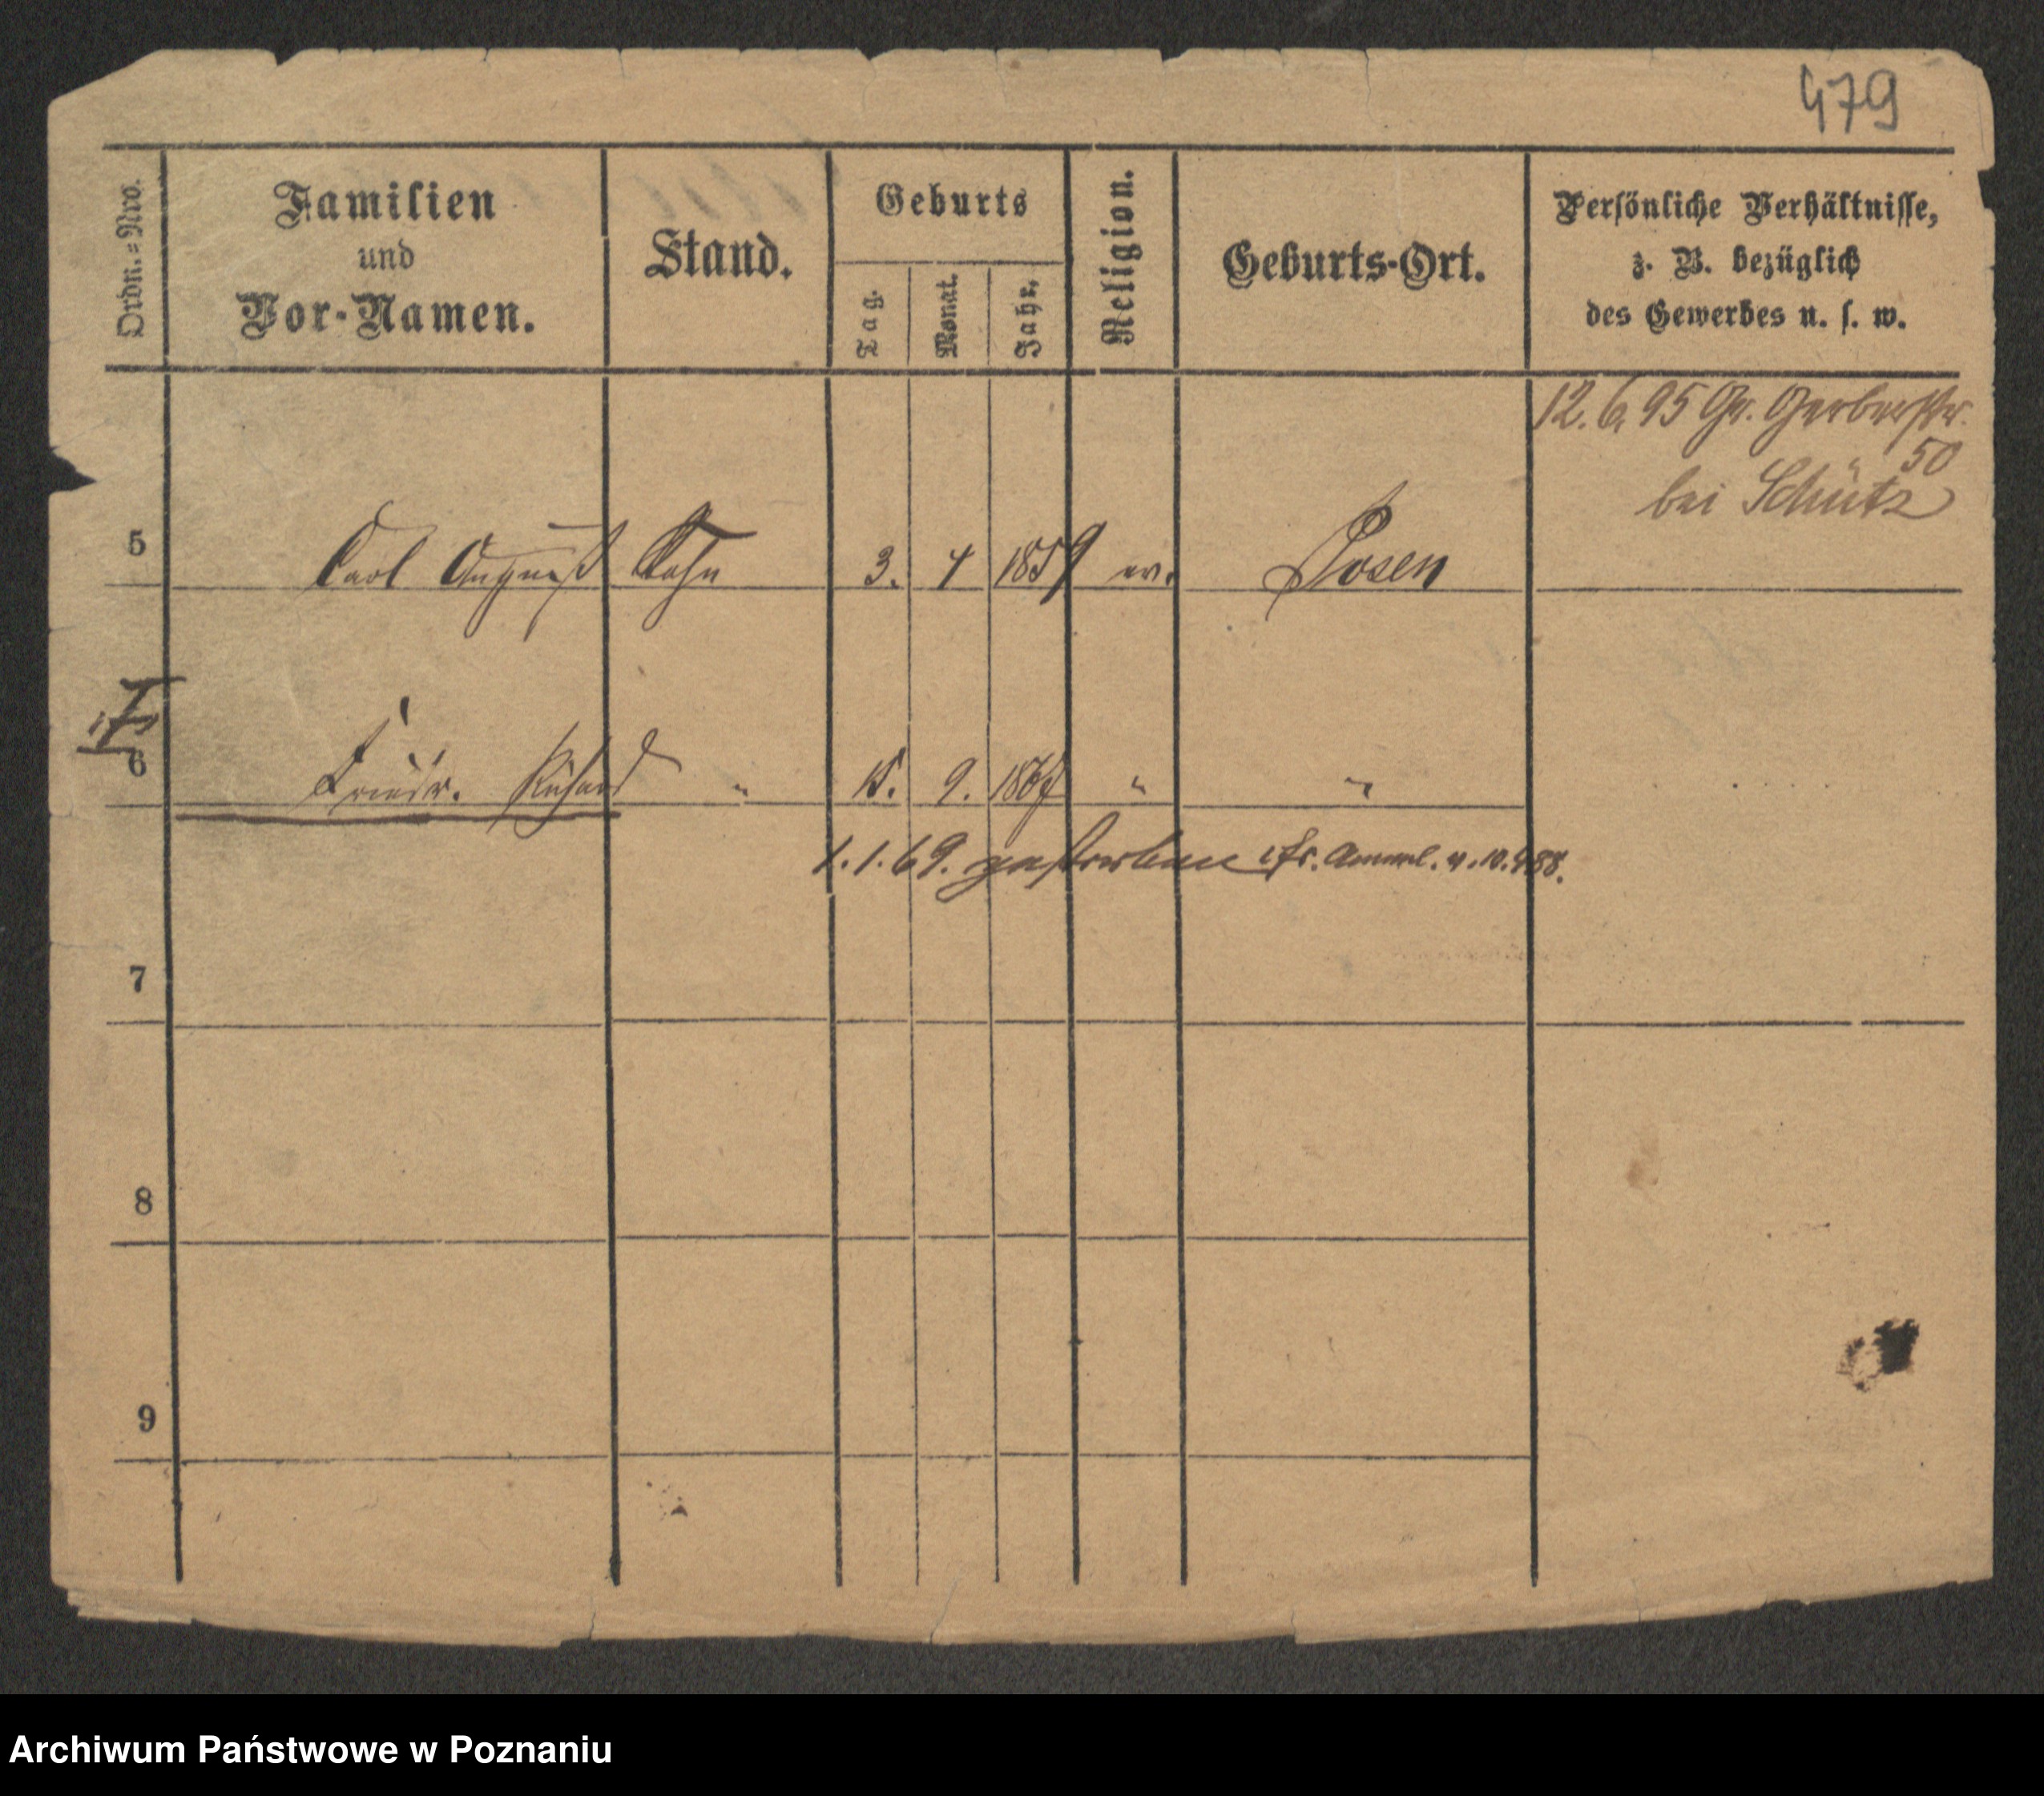 479
Ordn.=Nro.
Familien
und
Vor-Namen.
Stand.
Geburts
Tag.
Monat.
Jahr.
Religion.
Geburts-Ort.
Persönliche Verhältnisse,
z. B. bezüglich
des Gewerbes u. s. w.
12. 6. 95 Gr. Gerberstr.
50
bei Schütz
5 Carl August Sohn 3. 4 1859 ev. Posen
6 Friedr. Richard " 15. 9. 1867 " "
1. 1. 69. gestorben v. 10. 4. 88.
7
8
9
Archiwum Państwowe w Poznaniu